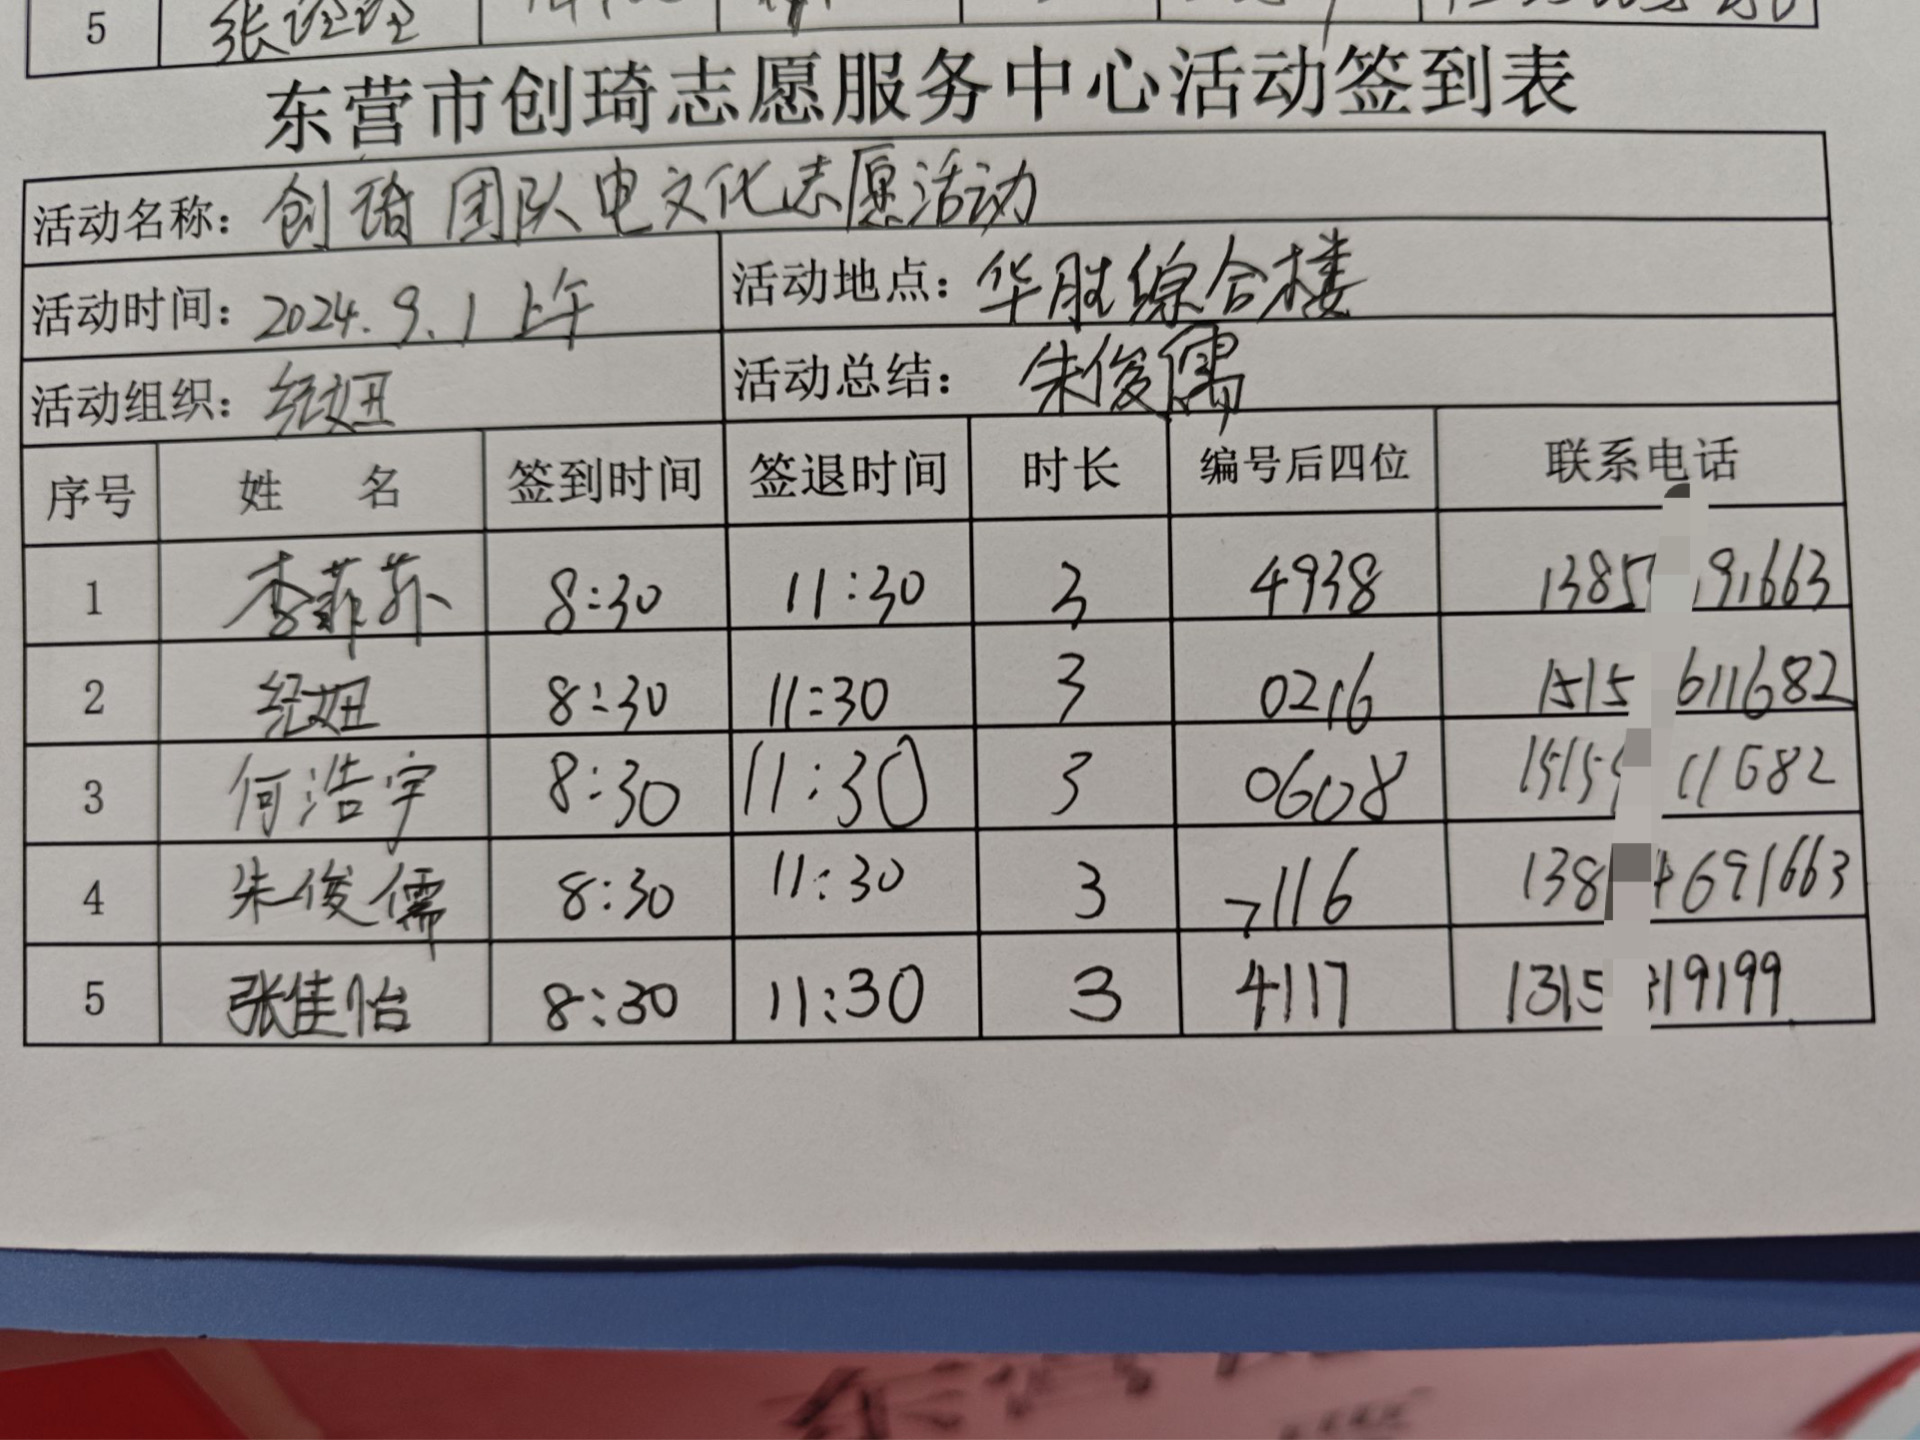 5 张
东营市创琦志愿服务中心活动签到表
活动名称：创琦团队电文化志愿活动
活动时间：2024.9.1上午 活动地点：华胜综合楼
活动组织：纪妞 活动总结：朱俊儒
序号 姓 名 签到时间 签退时间 时长 编号后四位 联系电话
1 李菲苏 8:30 11:30 3 4938 1385 191663
2 纪妞 8:30 11:30 3 0216 1515 611682
3 何浩宇 8:30 11:30 3 0608 1515 11682
4 朱俊儒 8:30 11:30 3 7116 138 4691663
5 张佳怡 8:30 11:30 3 4117 1315 19199